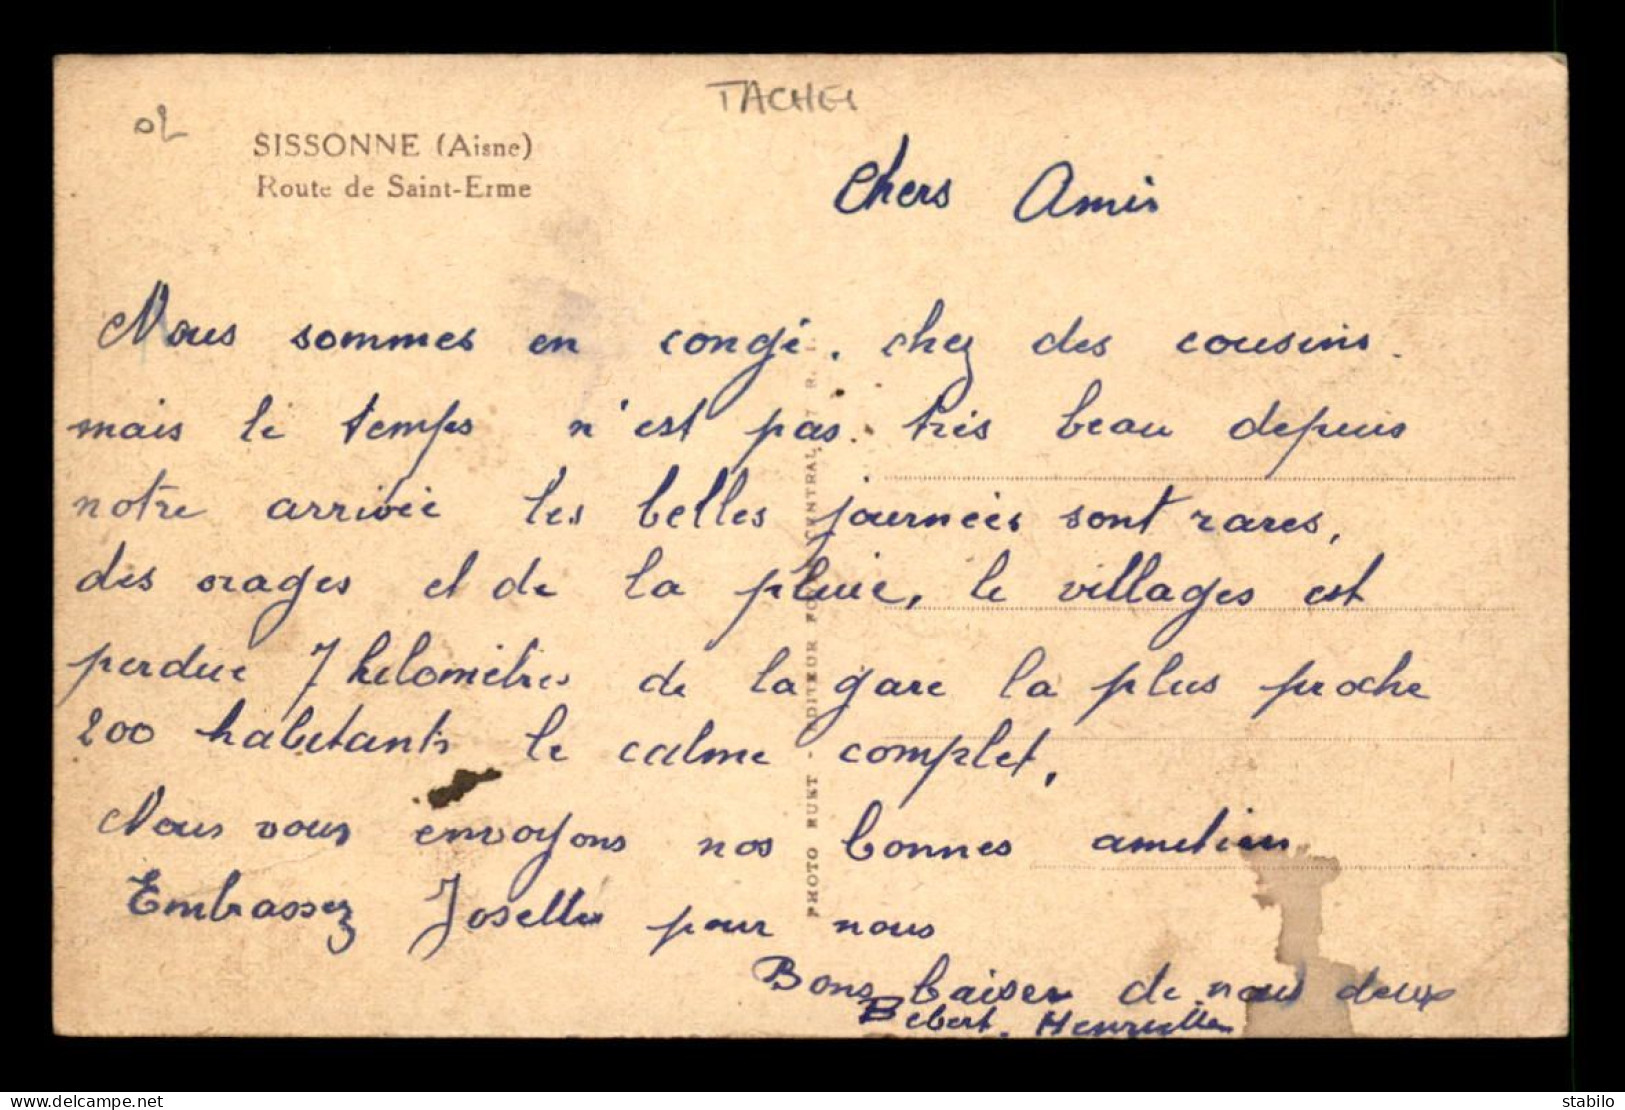 02
TACHES
SISSONNE (Aisne)
Route de Saint-Erme
Chers Amis
Nous sommes en congé. chez des cousins.
mais le temps n'est pas très beau depuis
notre arrivée les belles journées sont rares,
des orages et de la pluie, le villages est
perdue 7 kilomètres de la gare la plus proche
200 habitants le calme complet,
Nous vous envoyons nos bonnes amitiées
Embrassez Josette pour nous
Bons baiser de nous deux
Bebert. Henriette
PHOTO RUET - EDITEUR CENTRAL
delcampe.net
stabilo